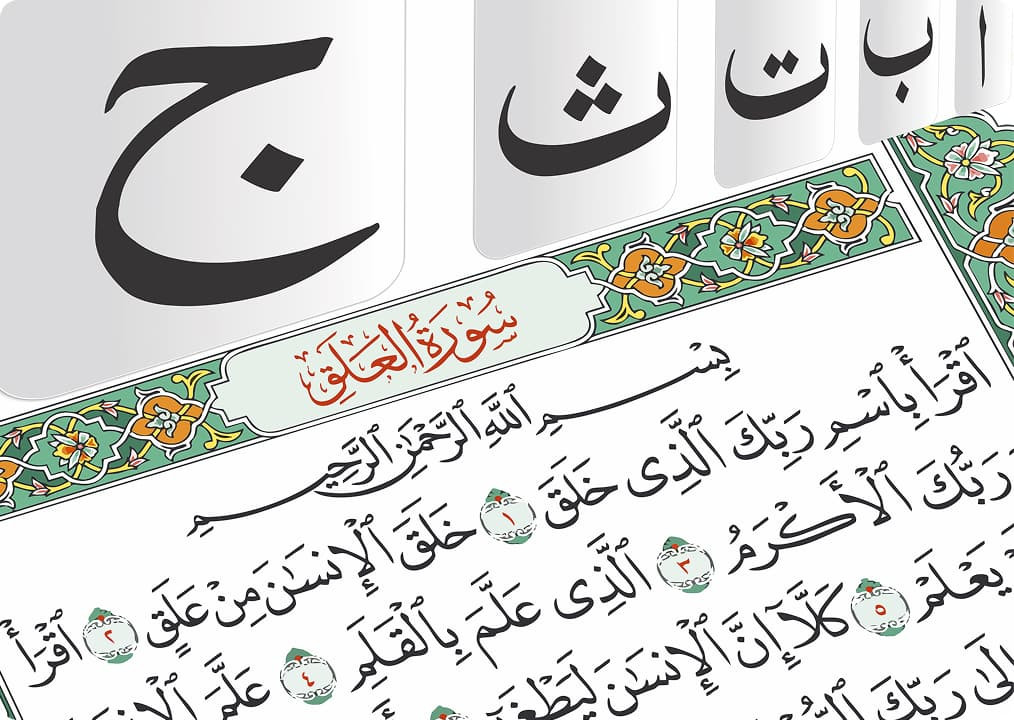 ا ب ت ث ج
سُورَةُ العَلَقِ
بِسْمِ ٱللَّهِ ٱلرَّحْمَٰنِ ٱلرَّحِيمِ
ٱقْرَأْ بِٱسْمِ رَبِّكَ ٱلَّذِى خَلَقَ ١ خَلَقَ ٱلْإِنسَٰنَ مِنْ عَلَقٍ ٢ ٱقْرَأْ
رَبُّكَ ٱلْأَكْرَمُ ٣ ٱلَّذِى عَلَّمَ بِٱلْقَلَمِ ٤ عَلَّمَ ٱلْإِنسَٰنَ
يَعْلَمْ ٥ كَلَّآ إِنَّ ٱلْإِنسَٰنَ لَيَطْغَىٰٓ
إِلَىٰ رَبِّكَ